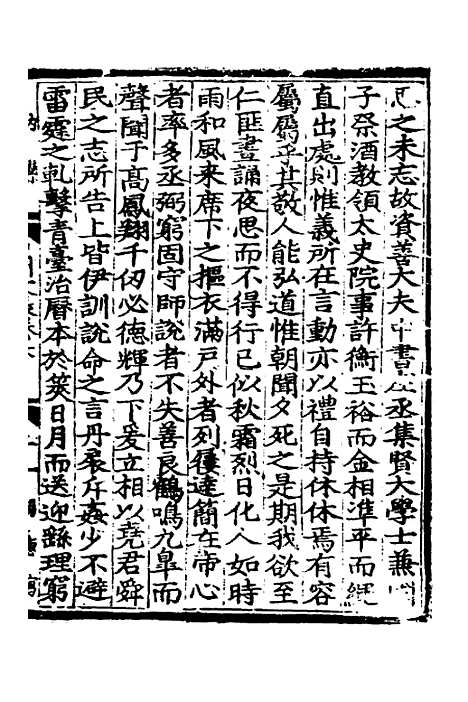 之未志故資善大夫中書左丞集賢大學士兼國
子祭酒教領太史院事許衡玉裕而金相準平而繩
直出處則惟義所在言動亦以禮自持休休焉有容
屬屬乎其敬人能弘道惟朝聞夕死之是期我欲至
仁匪晝誦夜思而不得行已似秋霜烈日化人如時
雨和風來席下之摳衣滿戶外者列屨達簡在帝心
者率多丞弼窮固守師說者不失善良鶴鳴九皐而
聲聞于高鳳翔千仞必德輝乃下爰立相以堯君舜
民之志所告上皆伊訓說命之言丹扆斥姦少不避
雷霆之軋擊青臺治曆本於筴日月而送迎繇理窮